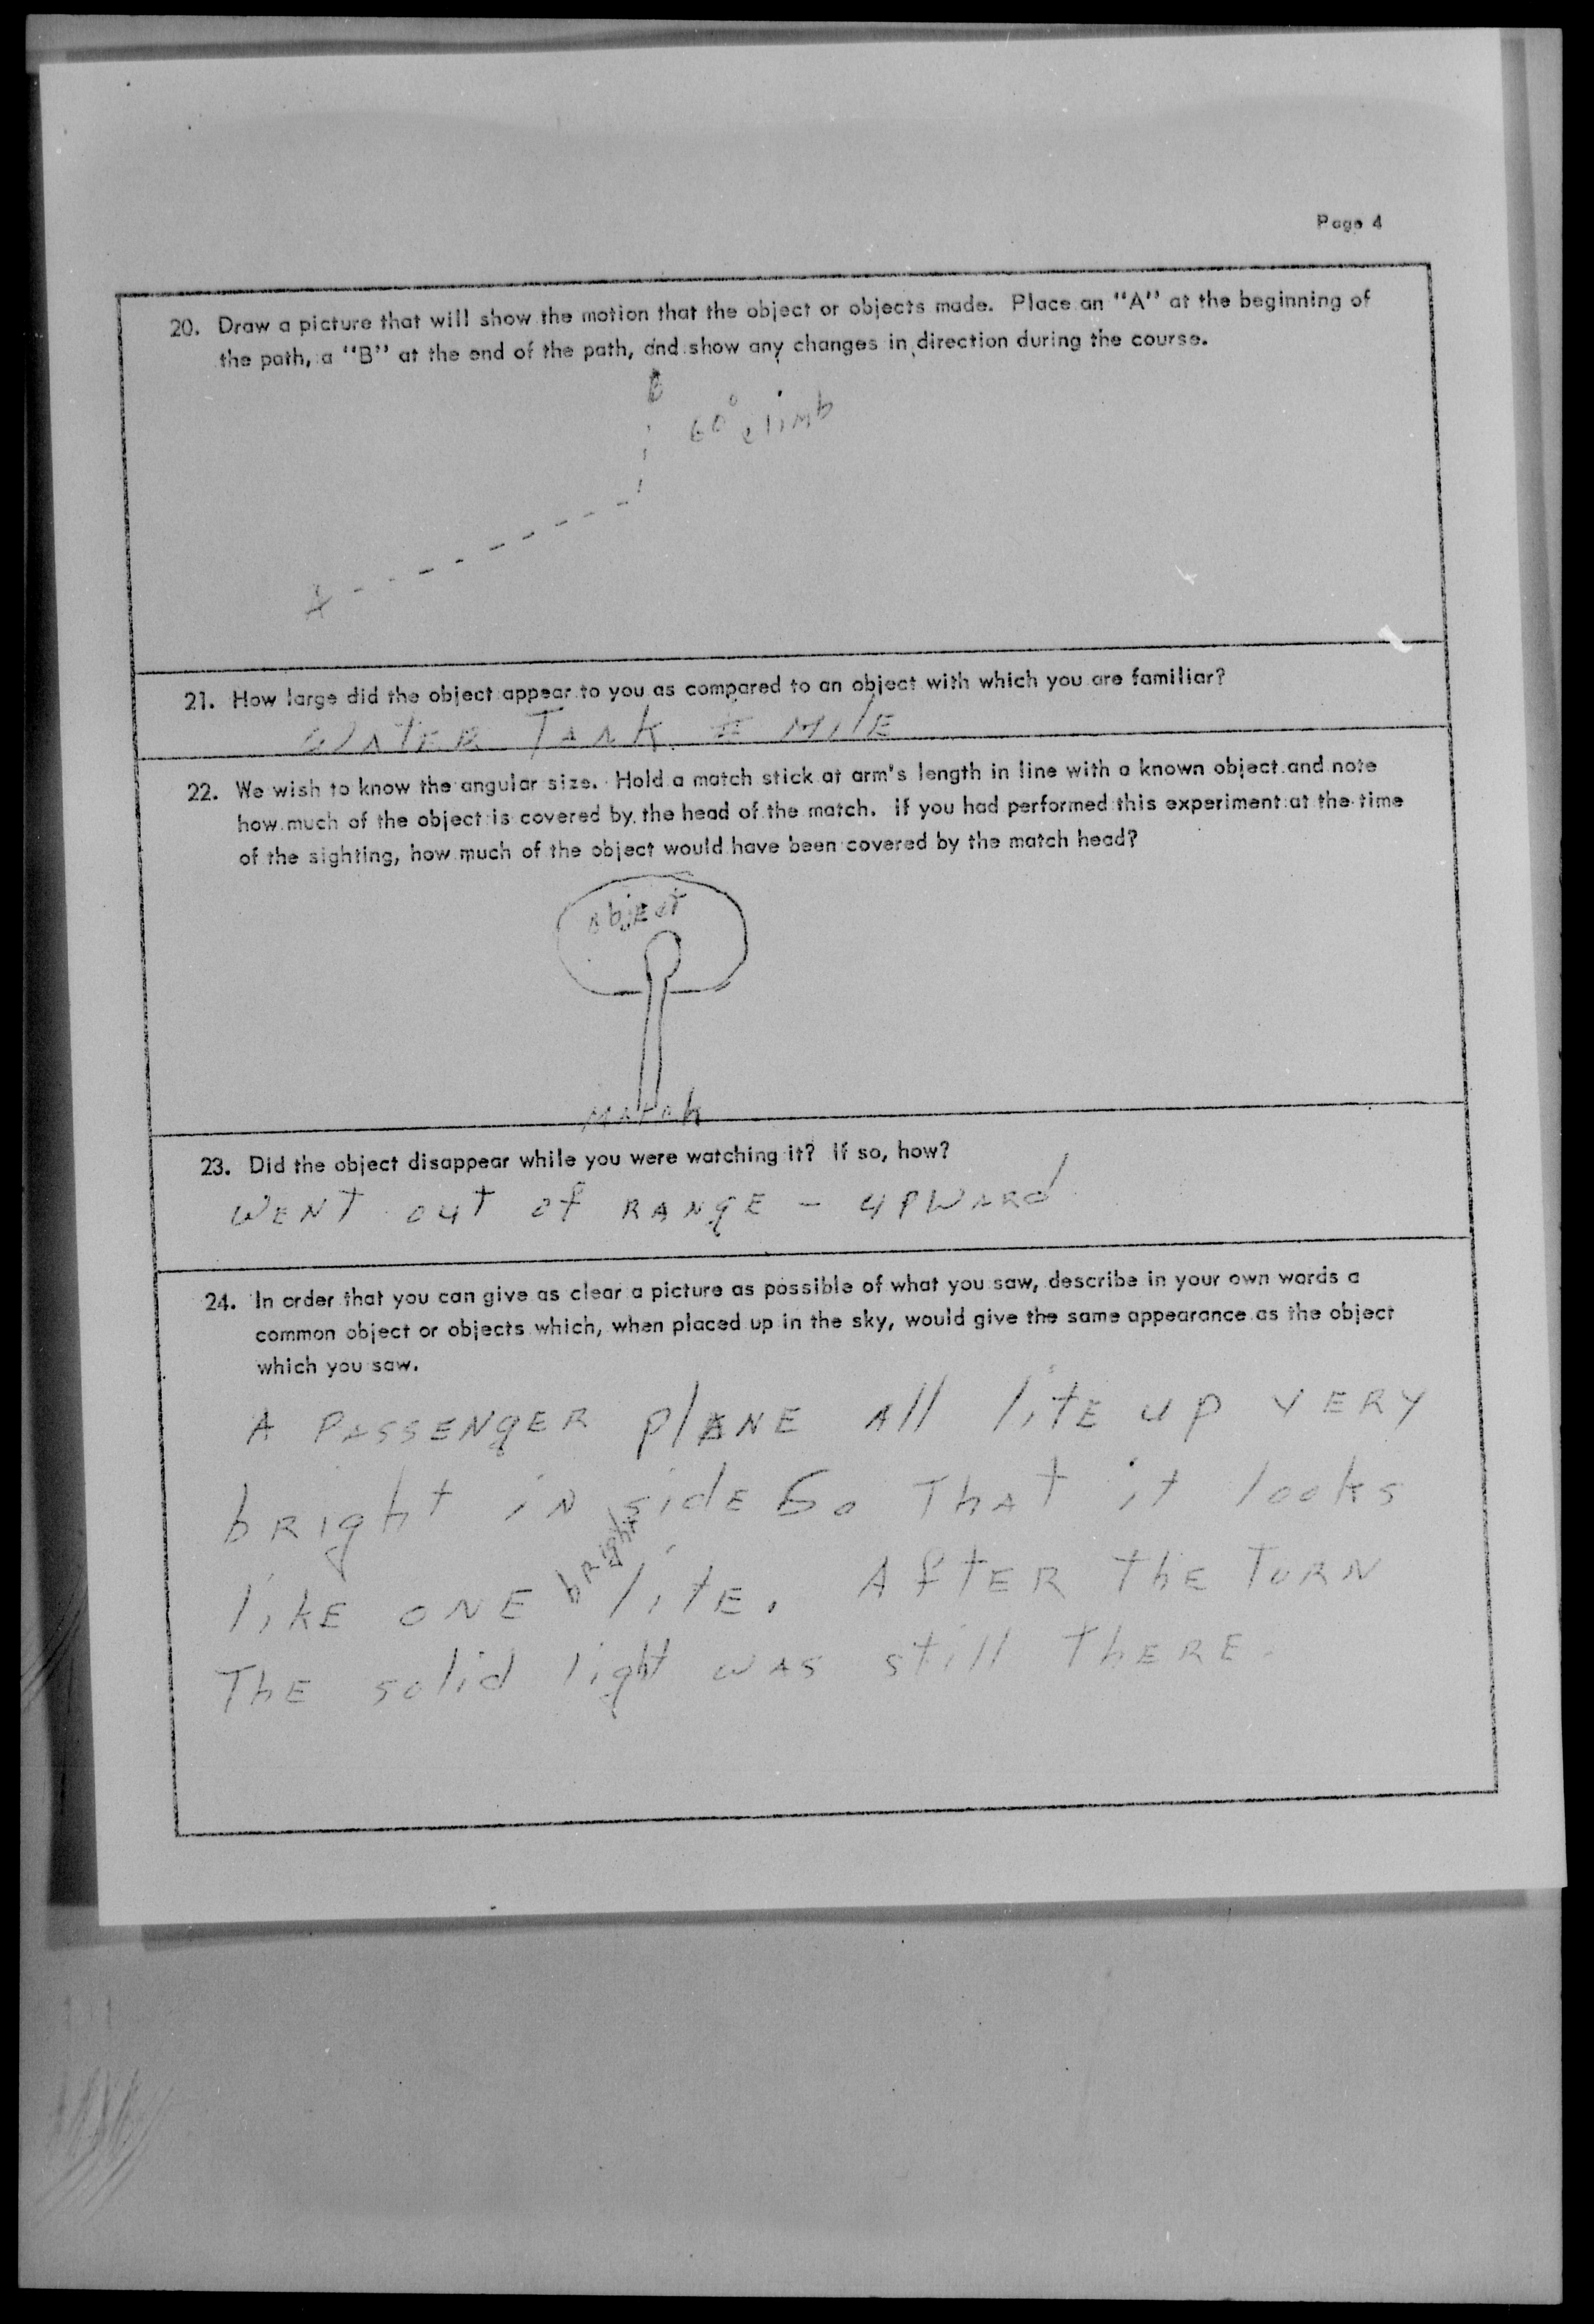 Page 4
20. Draw a picture that will show the motion that the object or objects made. Place an "A" at the beginning of
the path, a "B" at the end of the path, and show any changes in direction during the course.
B
60° climb
A
21. How large did the object appear to you as compared to an object with which you are familiar?
WATER TANK MILE
22. We wish to know the angular size. Hold a match stick at arm's length in line with a known object and note
how much of the object is covered by the head of the match. If you had performed this experiment at the time
of the sighting, how much of the object would have been covered by the match head?
object
MATCH
23. Did the object disappear while you were watching it? If so, how?
WENT out of RANGE - UPWARD
24. In order that you can give as clear a picture as possible of what you saw, describe in your own words a
common object or objects which, when placed up in the sky, would give the same appearance as the object
which you saw.
A PASSENGER PLANE All litE up VERY
bRight iN sidE So ThAT it looks
likE ONE bRight litE. AftER ThE TURN
ThE solid light WAS still ThERE.